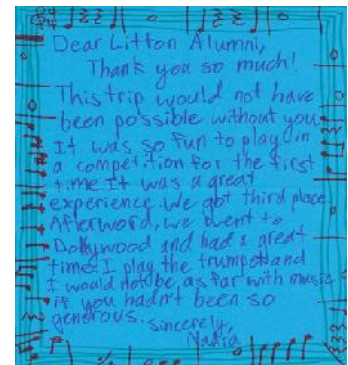 Dear Litton Alumni,
Thank you so much!
This trip would not have
been possible without you.
It was so fun to play in
a competition for the first
time. It was a great
experience. We got third place.
Afterword, we went to
Dollywood and had a great
time. I play the trumpet and
I would not be as far with music
if you hadn't been so
generous. sincerely,